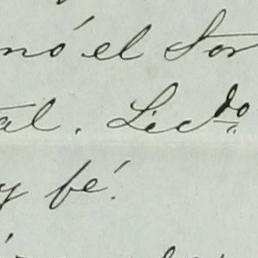 nó el Sor
tal. Licdo.
y fé.